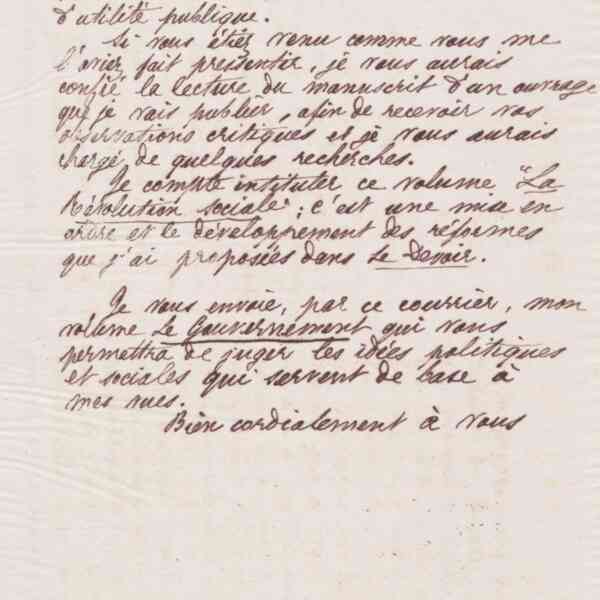 d'utilité publique.
Si vous étiez venu comme vous me
l'aviez fait pressentir, je vous aurais
confié la lecture du manuscrit d'un ouvrage
que je vais publier, afin de recevoir vos
observations critiques et je vous aurais
chargé de quelques recherches.
Je compte intituler ce volume "La
Révolution sociale"; c'est une mise en
ordre et le développement des réformes
que j'ai proposées dans Le Devoir.
Je vous envoie, par ce courrier, mon
volume Le Gouvernement qui vous
permettra de juger les idées politiques
et sociales qui servent de base à
mes vues.
Bien cordialement à vous